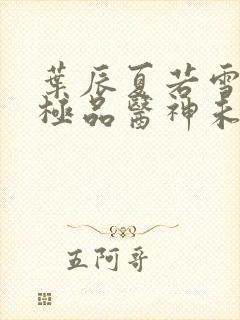 葉辰夏若雪
極品醫神未
五阿哥